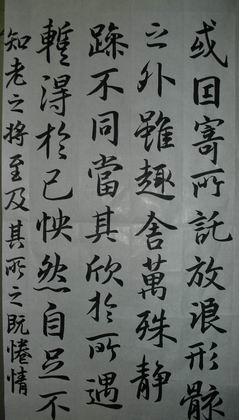 或因寄所託放浪形骸
之外雖趣舍萬殊靜
躁不同當其欣於所遇
暫得於己怏然自足不
知老之將至及其所之既惓情